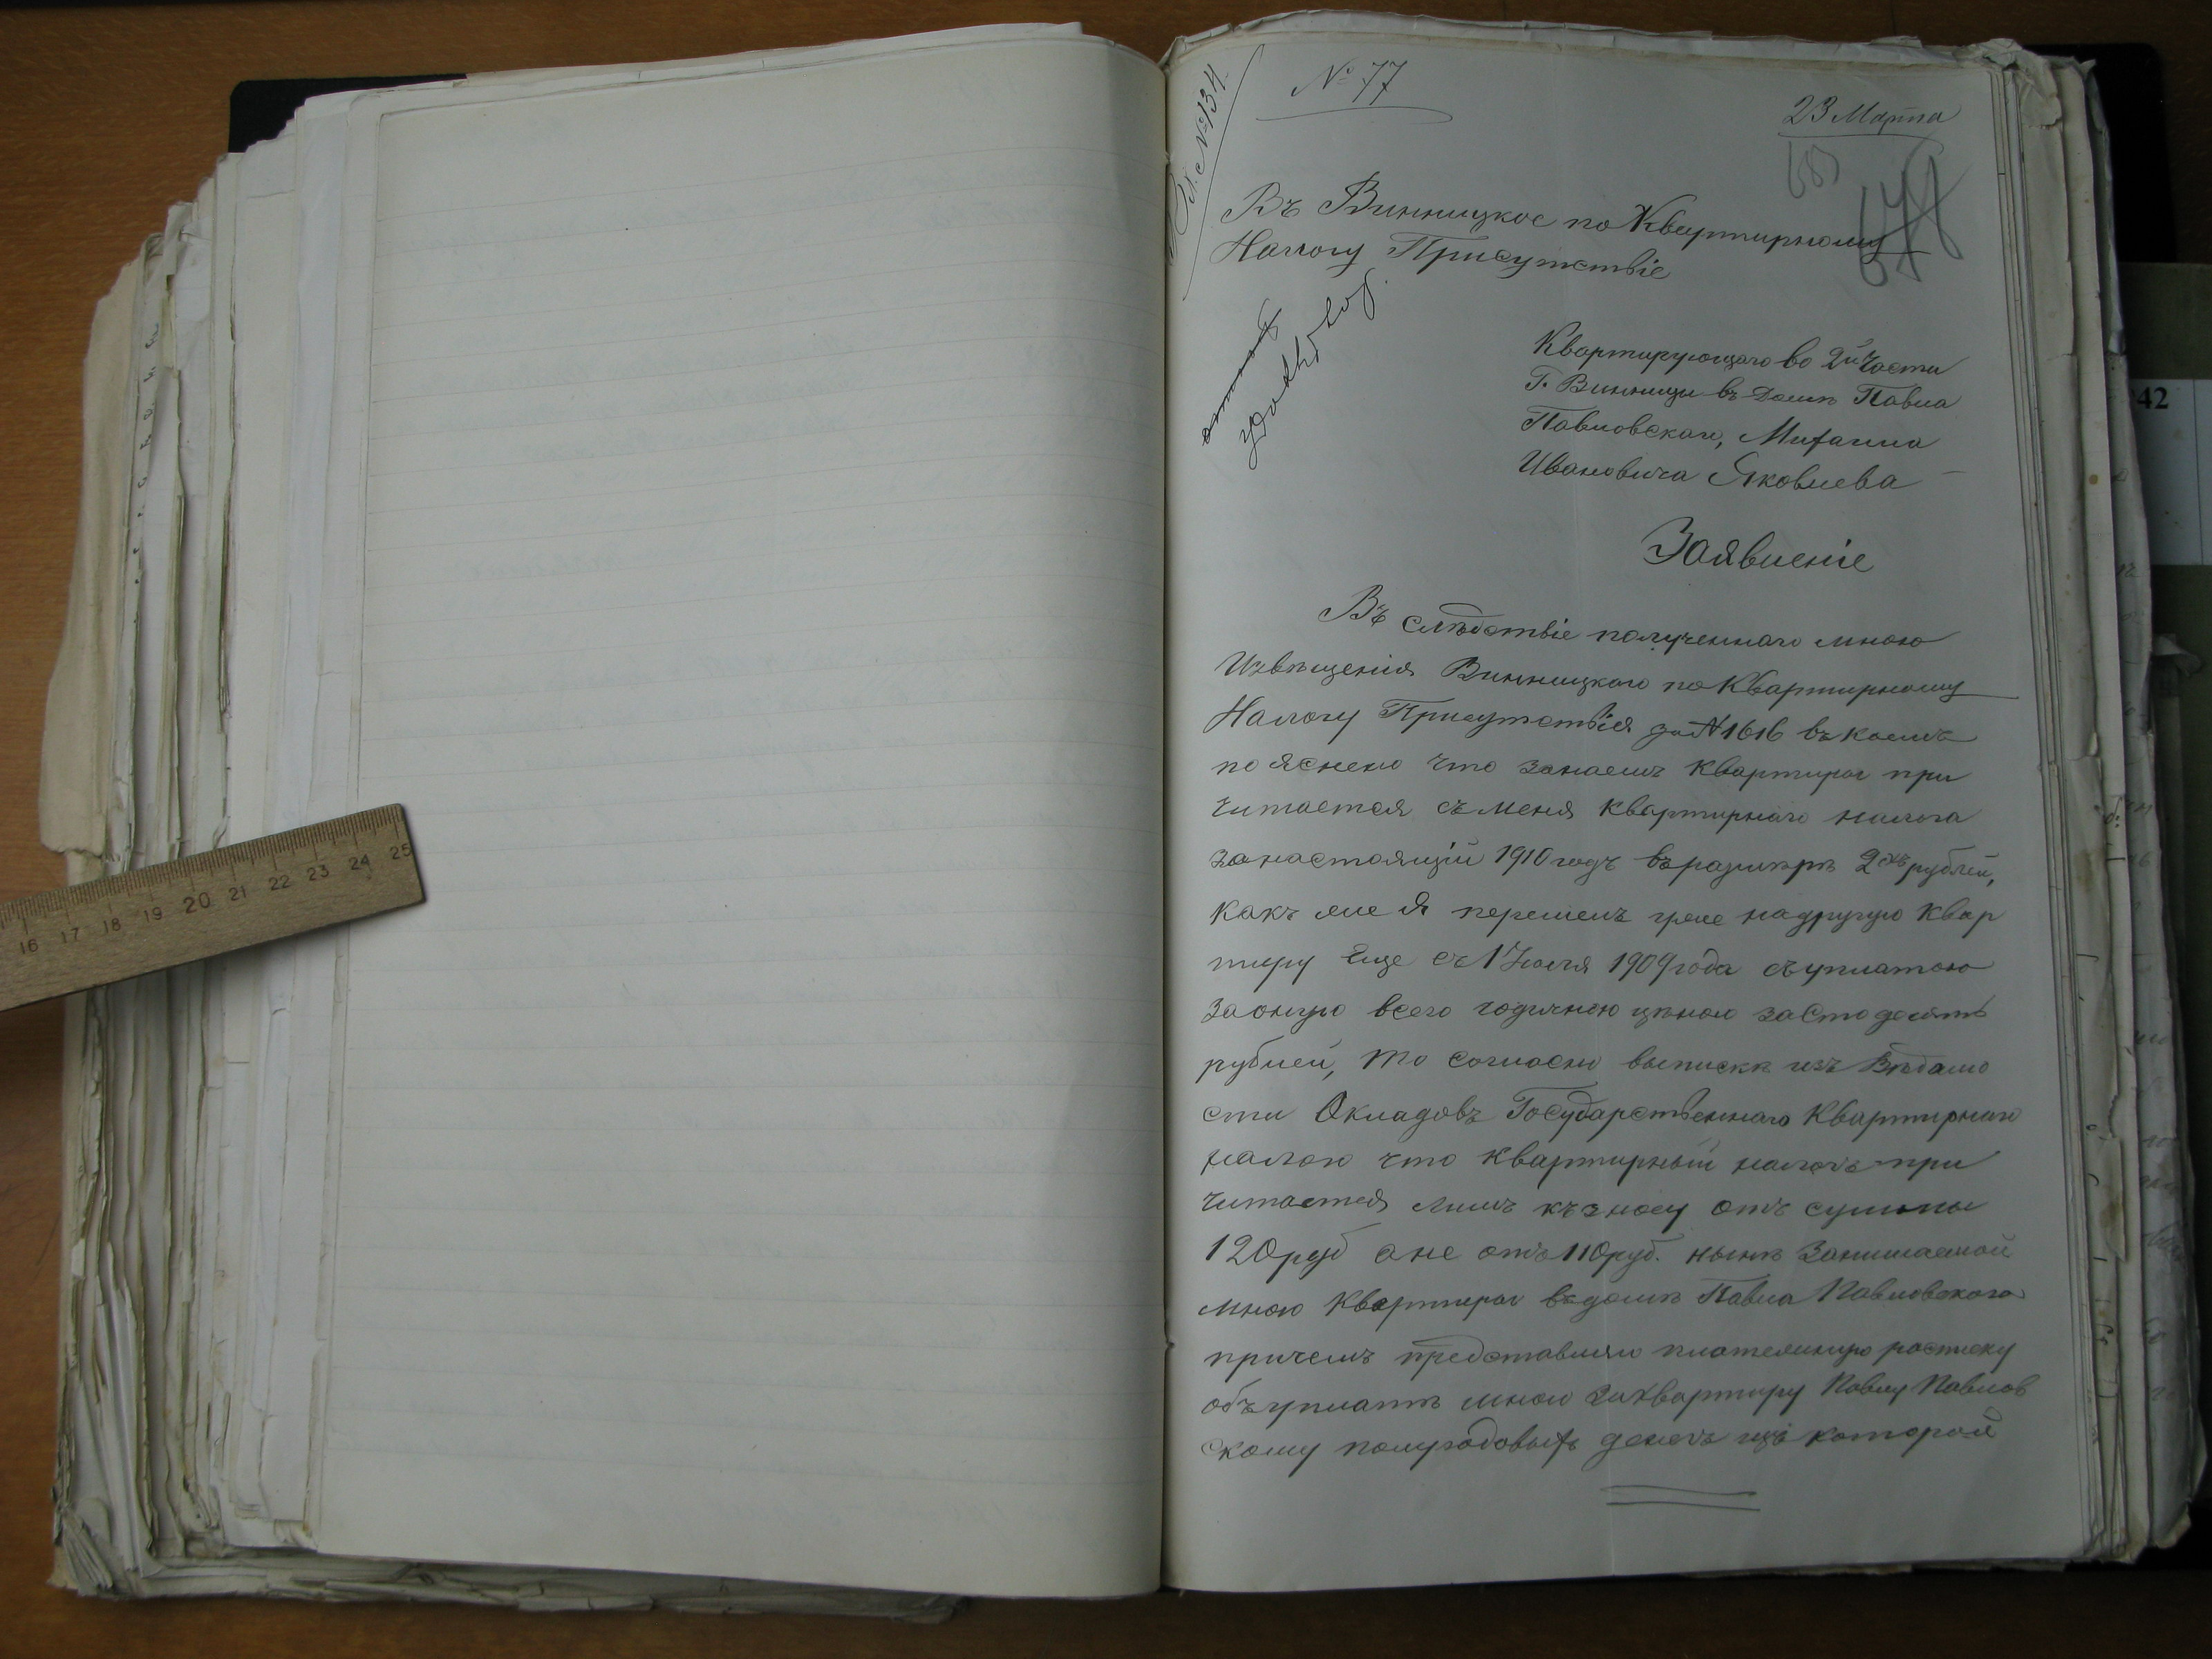 № 77
23 Марта
№ 134
Въ Винницкое по Квартирному
Налогу Присутствіе
Квартирующаго во 2й Части
Г. Винницы въ Домѣ Павла
Павловскаго, Михаила
Ивановича Яковлева
Заявленіе
Въ слѣдствіе полученнаго мною
Извѣщенія Винницкаго по Квартирному
Налогу Присутствія за № 1616 въ коемъ
по яснено что за наемъ квартиры при
читается съ меня квартирнаго налога
за настоящій 1910 годъ въ размѣрѣ 2хъ рублей,
какъ же я перешелъ уже на другую квар
тиру Еще съ 1 Іюля 1909 года съ уплатою
за оную всего годичною цѣною за Сто десять
рублей, то согласно выпискѣ изъ Вѣдомо
сти Окладовъ Государственнаго Квартирнаго
налога что квартирный налогъ при
читается лишъ къ зносу отъ суммы
120 руб а не отъ 110 руб. нынѣ Занимаемой
мною Квартиры въ домѣ Павла Павловскаго
причемъ представляю платежную росписку
объ уплатѣ мною за квартиру Павлу Павлов
скому полугодовыхъ денегъ изъ которой
16 17 18 19 20 21 22 23 24 25
42